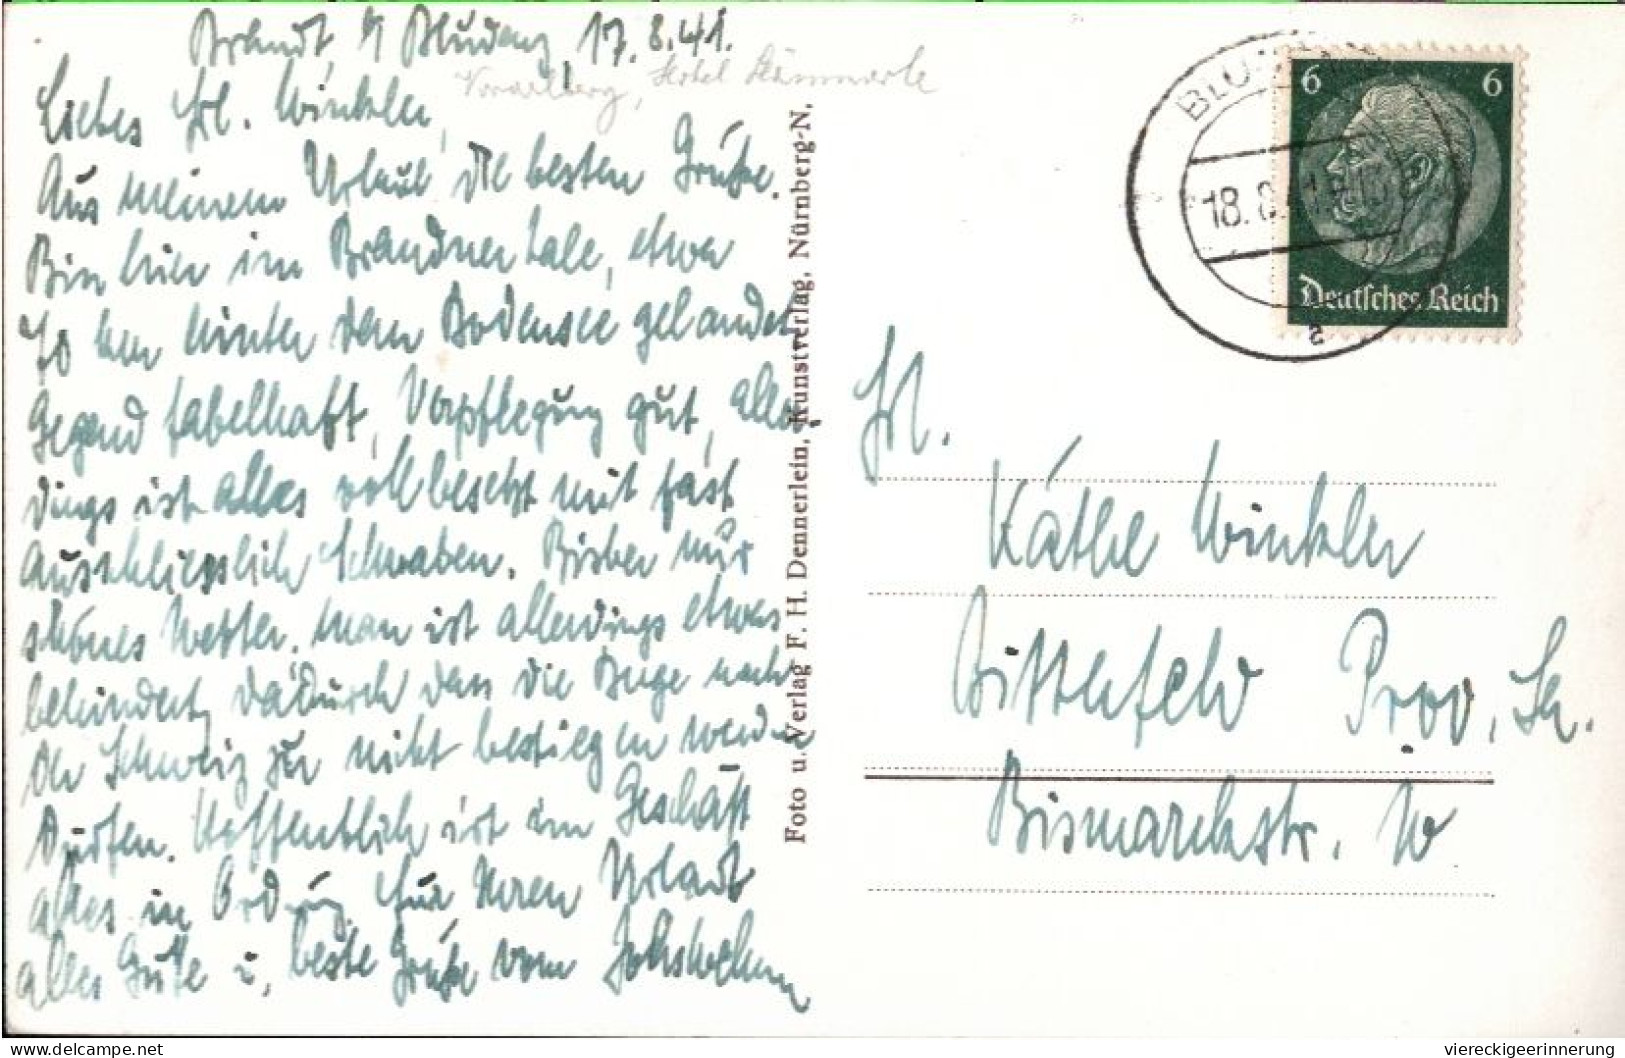 Brandt, b/ Bludenz, 17.8.41.
Vorarlberg, Hotel Hämmerle
Liebes Frl. Winkler,
Aus meinem Urlaub die besten Grüße.
Bin hier im Brandner tale, etwa
70 km hinter dem Bodensee gelandet.
Gegend fabelhaft, Verpflegung gut, aller-
dings ist alles voll besetzt mit fast
ausschliesslich Schwaben. Bisher nur
schönes Wetter. Man ist allerdings etwas
behindert, dadurch dass die Berge nach
der Schweiz zu nicht bestiegen werden
dürfen. Hoffentlich ist im Geschäft
alles in Ordnung. Für Ihren Urlaub
alles Gute u. beste Grüße vom
Foto u. Verlag F. H. Dennerlein, Kunstverlag, Nürnberg-N.
BLUDENZ
18.8.41
a
6 6
Deutsches Reich
Frl.
Käthe Winkler
Bitterfeld Prov. Sa.
Bismarckstr. 10
viereckigeerinnerung